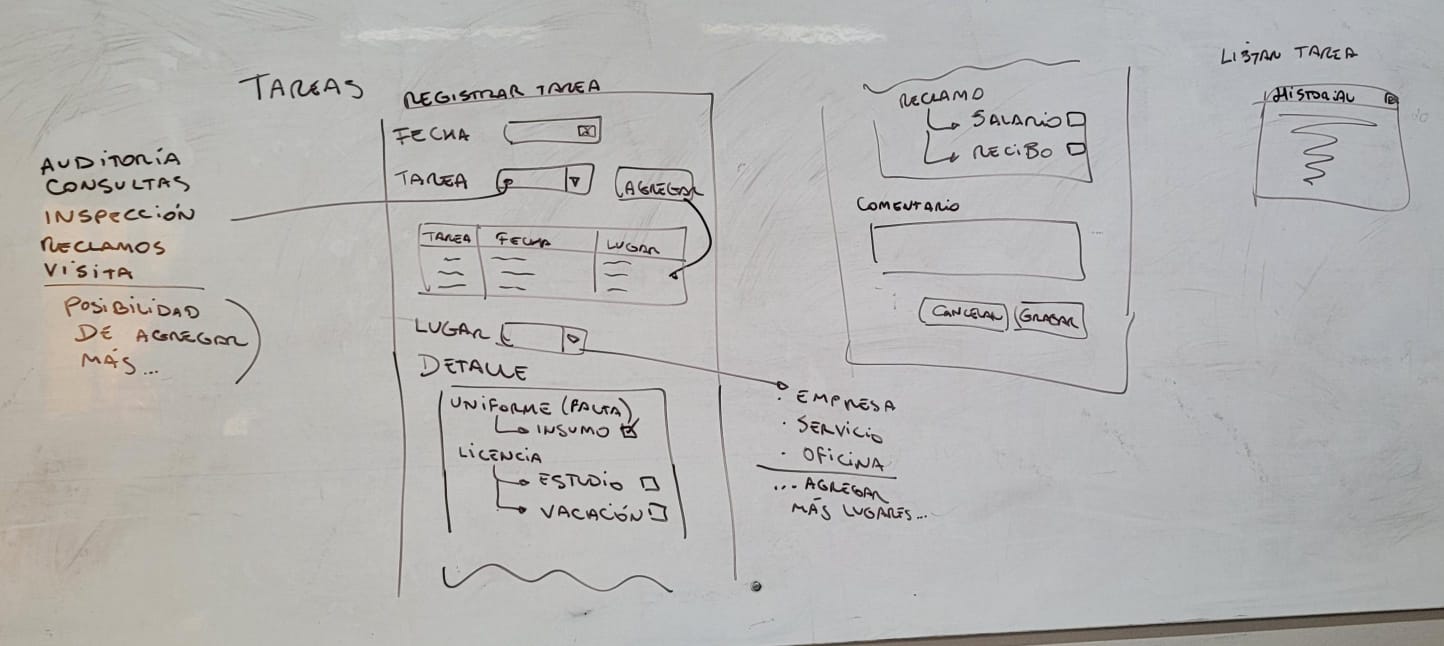 TAREAS
AUDITORÍA
CONSULTAS
INSPECCIÓN
RECLAMOS
VISITA
POSIBILIDAD
DE AGREGAR
MÁS...
REGISTRAR TAREA
FECHA
TAREA
AGREGAR
TAREA FECHA LUGAR
LUGAR
DETALLE
UNIFORME (FALTA)
INSUMO
LICENCIA
ESTUDIO
VACACIÓN
· EMPRESA
· SERVICIO
· OFICINA
... AGREGAR
MÁS LUGARES...
RECLAMO
SALARIO
RECIBO
COMENTARIO
CANCELAR GRABAR
LISTAR TAREA
HISTORIAL